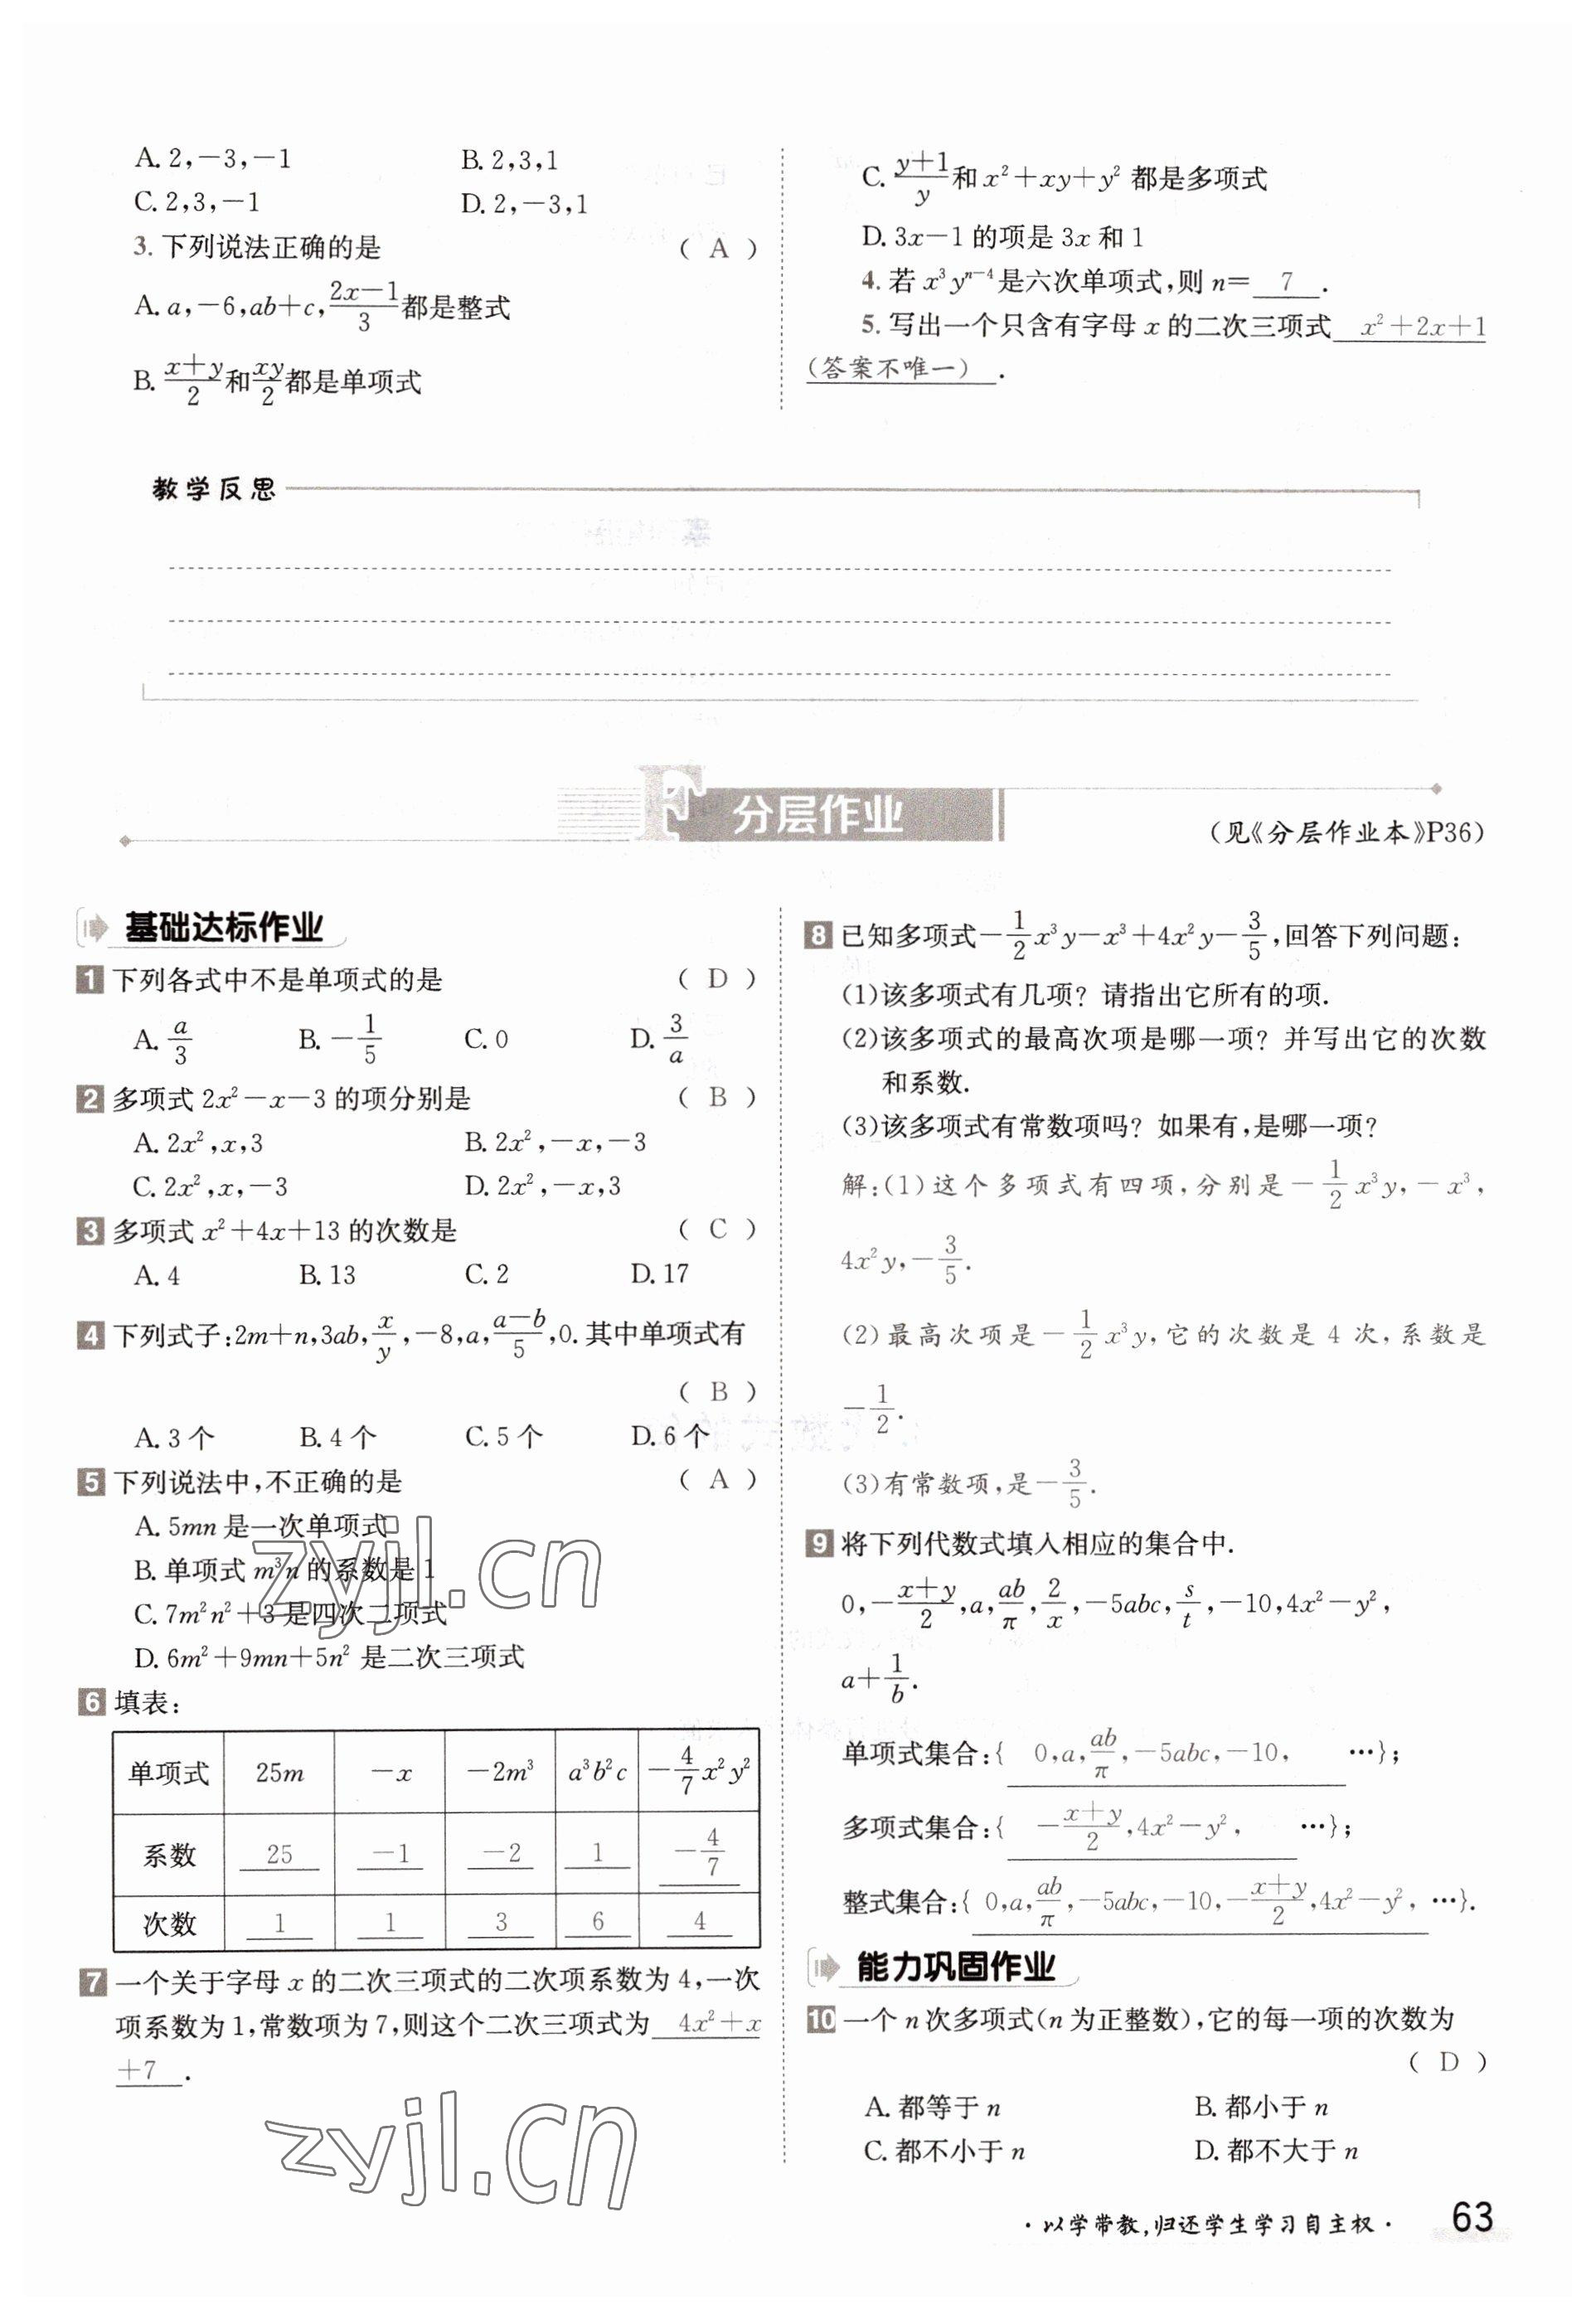 A. 2,－3,－1 B. 2,3,1
C. 2,3,－1 D. 2,－3,1
3. 下列说法正确的是 ( A )
A. a,－6,ab＋c,(2x－1)/3都是整式
B. (x＋y)/2和xy/2都是单项式
C. (y＋1)/y和 x²＋xy＋y² 都是多项式
D. 3x－1 的项是 3x 和 1
4. 若 x³yⁿ⁻⁴是六次单项式,则 n＝ 7 .
5. 写出一个只含有字母 x 的二次三项式 x²＋2x＋1
(答案不唯一) .
教学反思
F 分层作业
(见《分层作业本》P36)
基础达标作业
1 下列各式中不是单项式的是 ( D )
A. a/3 B. －1/5 C. 0 D. 3/a
2 多项式 2x²－x－3 的项分别是 ( B )
A. 2x²,x,3 B. 2x²,－x,－3
C. 2x²,x,－3 D. 2x²,－x,3
3 多项式 x²＋4x＋13 的次数是 ( C )
A. 4 B. 13 C. 2 D. 17
4 下列式子:2m＋n,3ab,x/y,－8,a,(a－b)/5,0. 其中单项式有
( B )
A. 3 个 B. 4 个 C. 5 个 D. 6 个
5 下列说法中,不正确的是 ( A )
A. 5mn 是一次单项式
B. 单项式 m³n 的系数是 1
C. 7m²n²＋3 是四次二项式
D. 6m²＋9mn＋5n² 是二次三项式
zyjl.cn
6 填表:
单项式 25m －x －2m³ a³b²c －4/7x²y²
系数 25 －1 －2 1 －4/7
次数 1 1 3 6 4
7 一个关于字母 x 的二次三项式的二次项系数为 4,一次
项系数为 1,常数项为 7,则这个二次三项式为 4x²＋x
＋7 .
zyjl.cn
8 已知多项式－1/2x³y－x³＋4x²y－3/5,回答下列问题:
(1)该多项式有几项? 请指出它所有的项.
(2)该多项式的最高次项是哪一项? 并写出它的次数
和系数.
(3)该多项式有常数项吗? 如果有,是哪一项?
解:(1)这个多项式有四项,分别是－1/2x³y,－x³,
4x²y,－3/5.
(2)最高次项是－1/2x³y,它的次数是 4 次,系数是
－1/2.
(3)有常数项,是－3/5.
9 将下列代数式填入相应的集合中.
0,－(x＋y)/2,a,ab/π,2/x,－5abc,s/t,－10,4x²－y²,
a＋1/b.
单项式集合:{ 0,a,ab/π,－5abc,－10, …};
多项式集合:{ －(x＋y)/2,4x²－y², …};
整式集合:{ 0,a,ab/π,－5abc,－10,－(x＋y)/2,4x²－y², …}.
能力巩固作业
10 一个 n 次多项式(n 为正整数),它的每一项的次数为
( D )
A. 都等于 n B. 都小于 n
C. 都不小于 n D. 都不大于 n
·以学带教,归还学生学习自主权· 63